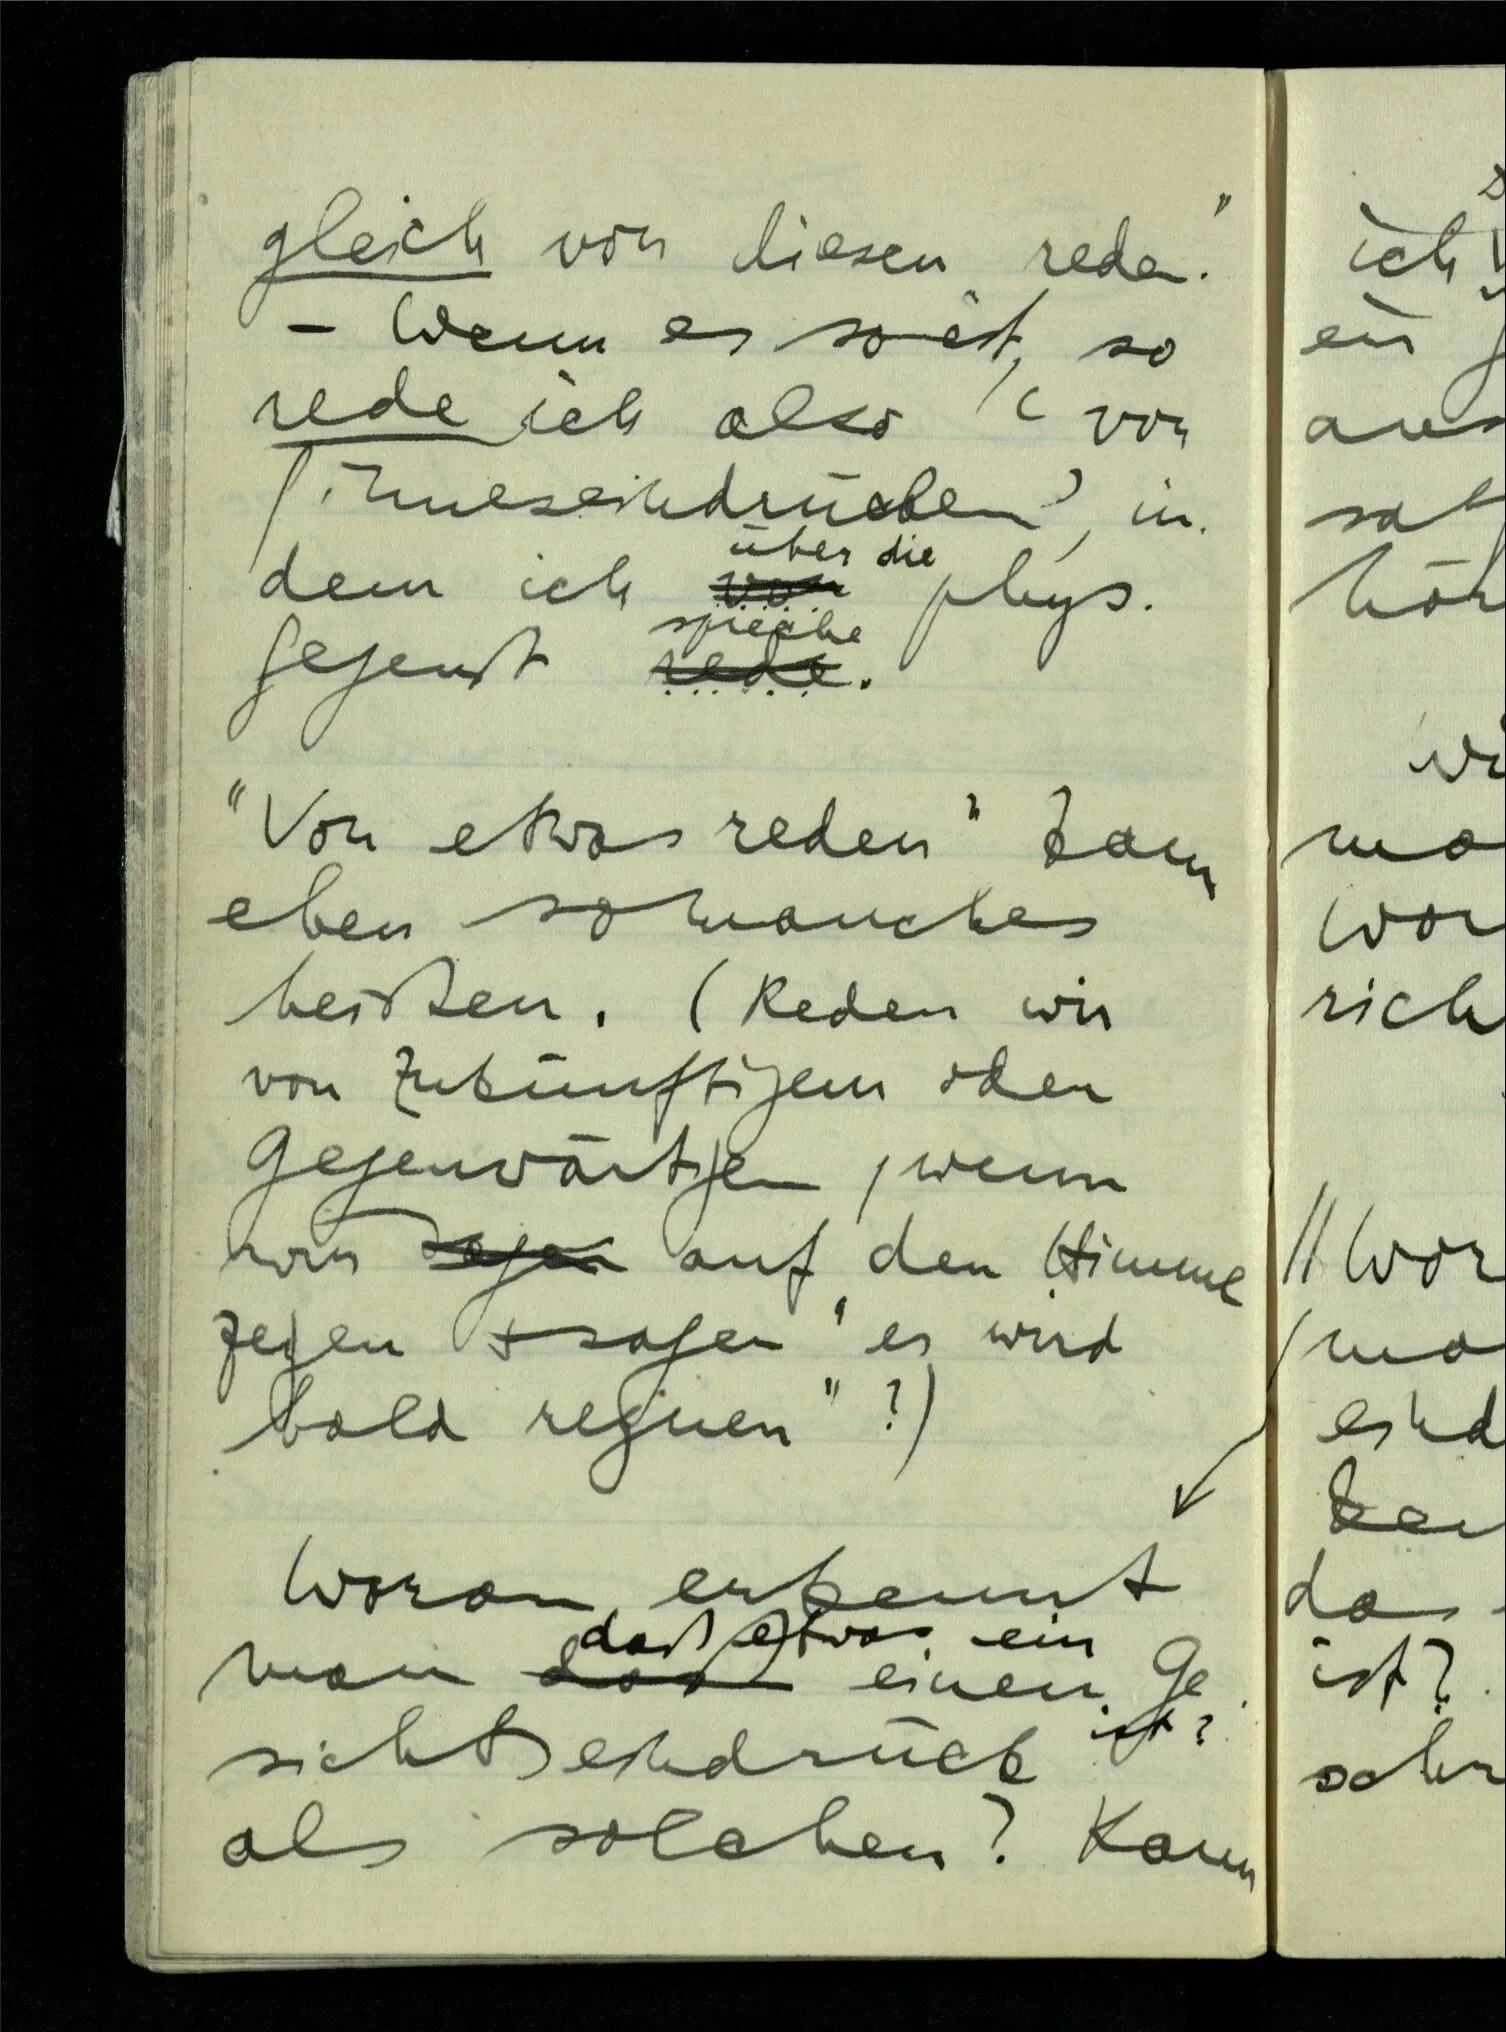 gleich von diesen reden."
– Wenn es so ist, so
rede ich also ‘von
Sinneseindrücken’, in-
dem ich von über die phys.
Gegenst rede spreche.
"Von etwas reden" kann
eben so manches
heißen. (Reden wir
von Zukünftigem oder
Gegenwärtigem, wenn
wir sagen auf den Himmel
zeigen + sagen "es wird
bald regnen"?)
Woran erkennt
daß etwas ein
man das einen Ge-
ist?
sichtseindruck
als solchen? Kann
ich
ein
aus
sat
hör
wi
ma
wor
rich
// Wor
ma
eind
ken
das
ist?
schr